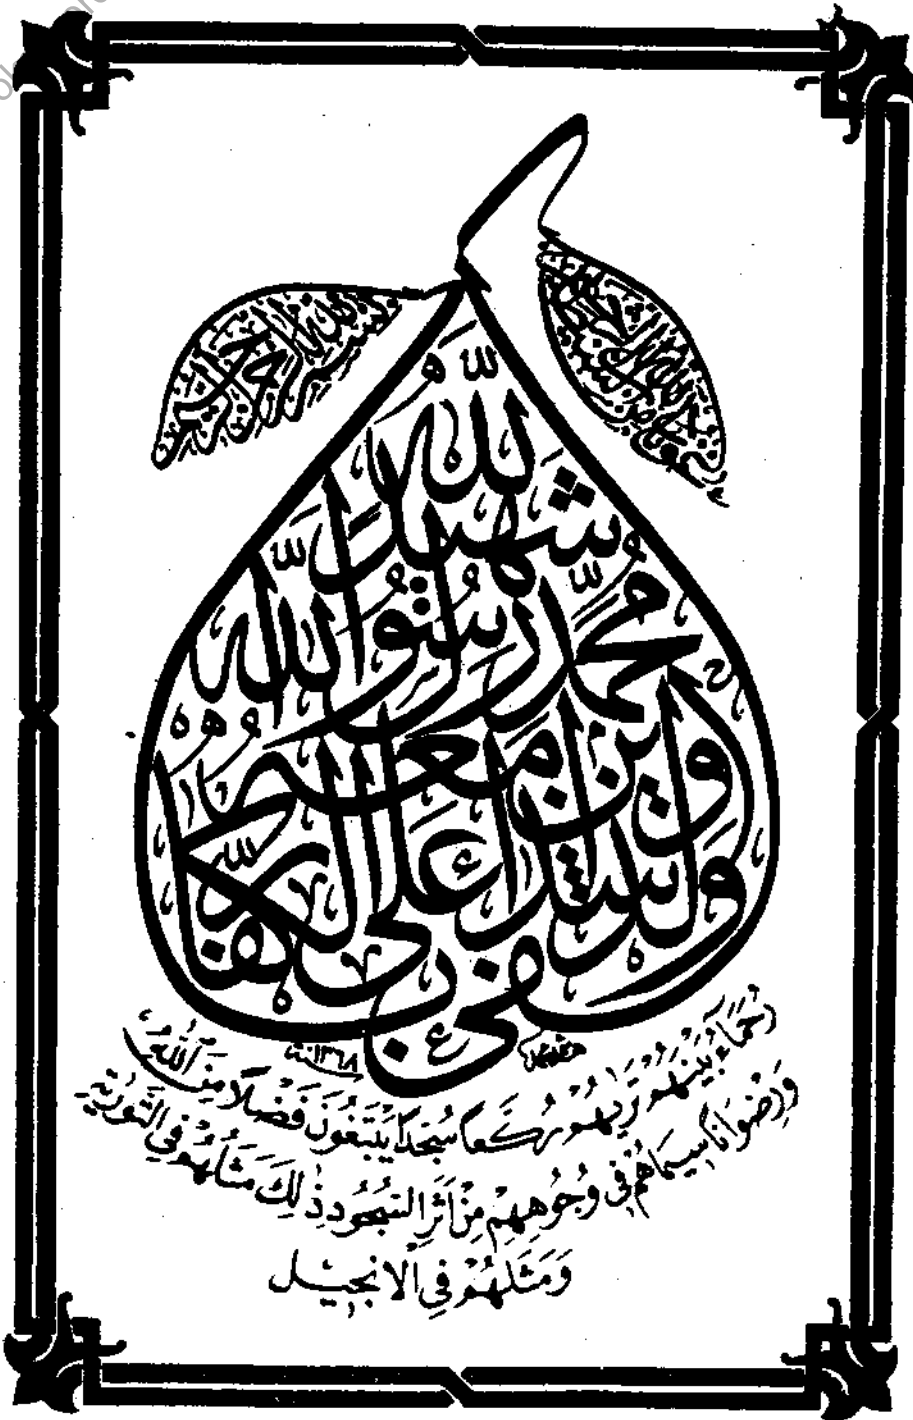 بسم الله الرحمن الرحيم
وكفى بالله شهيدا
محمد رسول الله
والذين معه
أشداء على الكفار
رُحَمَاءُ بَيْنَهُمْ تَرَيهُمْ رُكَّعاً سُجَّداً يَبْتَغُونَ فَضْلاً مِنَ اللهِ
وَرِضْوَاناً سِيمَاهُمْ فِي وُجُوهِهِمْ مِنْ اَثَرِ السُّجُودِ ذٰلِكَ مَثَلُهُمْ فِي التَّوْرٰيةِ
وَمَثَلُهُمْ فِي الْاِنْجِيلِ
١٣٦٨